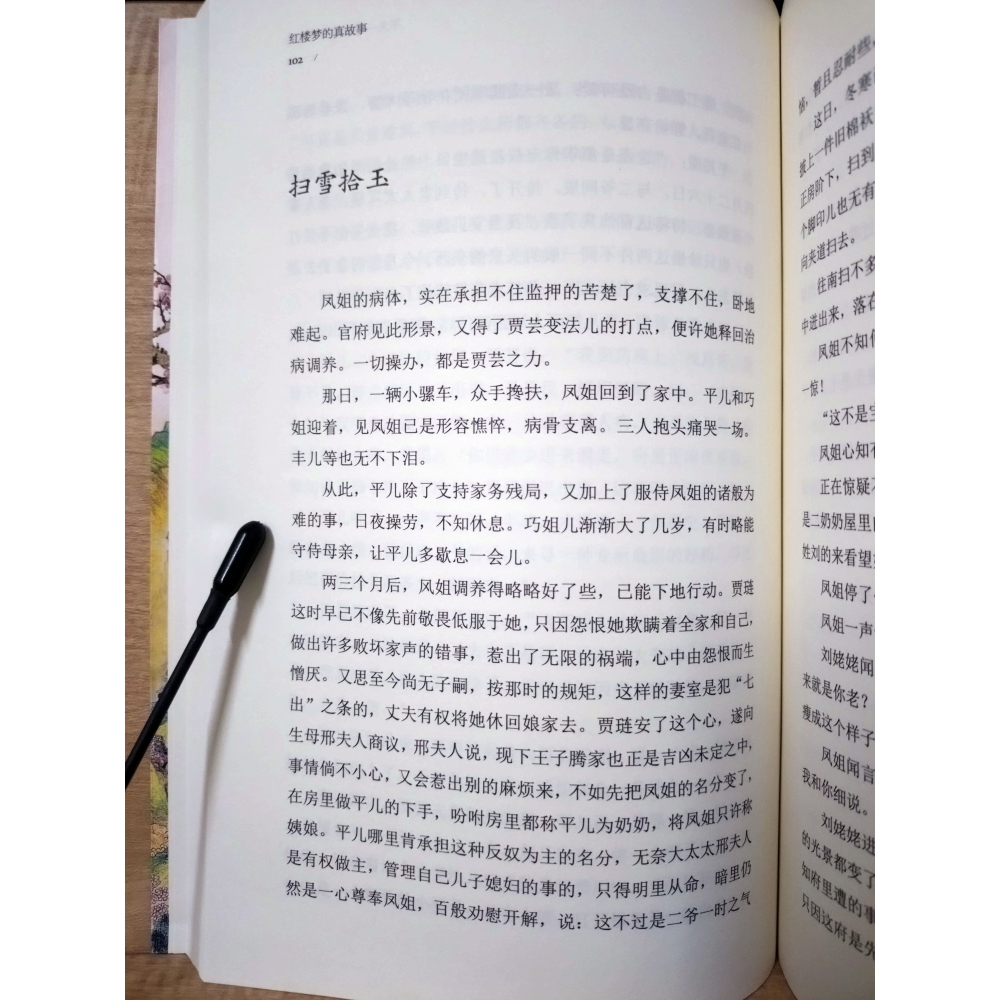 红楼梦的真故事
102
扫雪拾玉
凤姐的病体，实在承担不住监押的苦楚了，支撑不住，卧地
难起。官府见此形景，又得了贾芸变法儿的打点，便许她释回治
病调养。一切操办，都是贾芸之力。
那日，一辆小骡车，众手搀扶，凤姐回到了家中。平儿和巧
姐迎着，见凤姐已是形容憔悴，病骨支离。三人抱头痛哭一场。
丰儿等也无不下泪。
从此，平儿除了支持家务残局，又加上了服侍凤姐的诸般为
难的事，日夜操劳，不知休息。巧姐儿渐渐大了几岁，有时略能
守侍母亲，让平儿多歇息一会儿。
两三个月后，凤姐调养得略略好了些，已能下地行动。贾琏
这时早已不像先前敬畏低服于她，只因怨恨她欺瞒着全家和自己，
做出许多败坏家声的错事，惹出了无限的祸端，心中由怨恨而生
憎厌。又思至今尚无子嗣，按那时的规矩，这样的妻室是犯“七
出”之条的，丈夫有权将她休回娘家去。贾琏安了这个心，遂向
生母邢夫人商议，邢夫人说，现下王子腾家也正是吉凶未定之中，
事情倘不小心，又会惹出别的麻烦来，不如先把凤姐的名分变了，
在房里做平儿的下手，吩咐房里都称平儿为奶奶，将凤姐只许称
姨娘。平儿哪里肯承担这种反奴为主的名分，无奈大太太邢夫人
是有权做主，管理自己儿子媳妇的事的，只得明里从命，暗里仍
然是一心尊奉凤姐，百般劝慰开解，说：这不过是二爷一时之气
恼，暂且忍耐些，
这日，冬寒
披上一件旧棉袄
正房阶下，扫到
个脚印儿也无有
向夹道扫去。
往南扫不多
中迸出来，落在
凤姐不知何
一惊！
“这不是宝
凤姐心知有
正在惊疑不
是二奶奶屋里的
姓刘的来看望
凤姐停了
凤姐一声
刘姥姥闻
来就是你老？
瘦成这个样子
凤姐闻言
我和你细说。
刘姥姥进
的光景都变了
知府里遭的事
只因这府是先